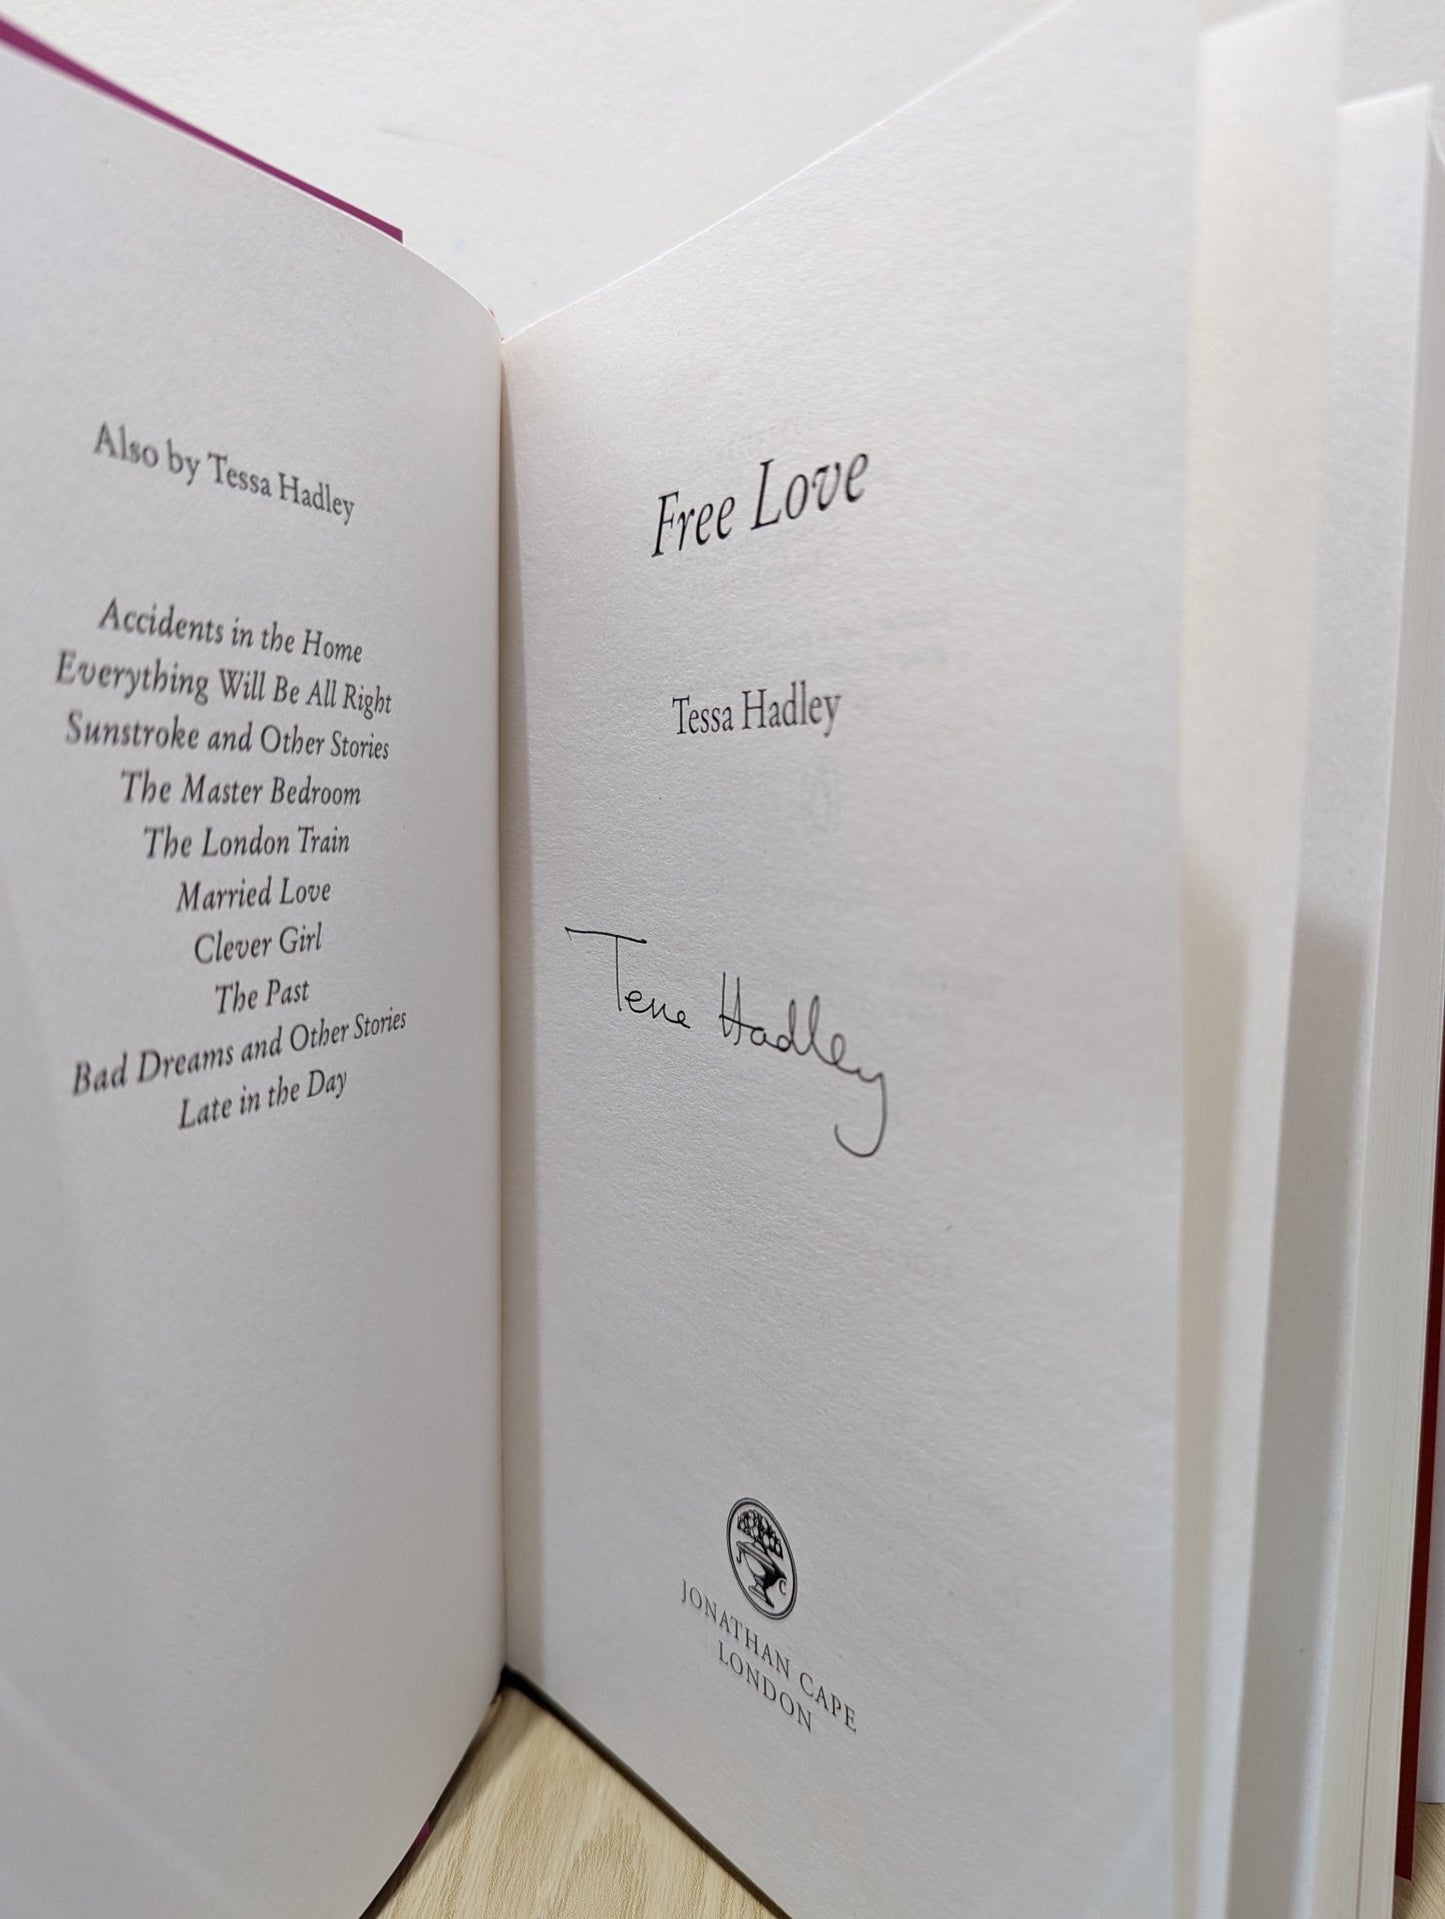 Also by Tessa Hadley
Accidents in the Home
Everything Will Be All Right
Sunstroke and Other Stories
The Master Bedroom
The London Train
Married Love
Clever Girl
The Past
Bad Dreams and Other Stories
Late in the Day
Free Love
Tessa Hadley
Tessa Hadley
J C
JONATHAN CAPE
LONDON